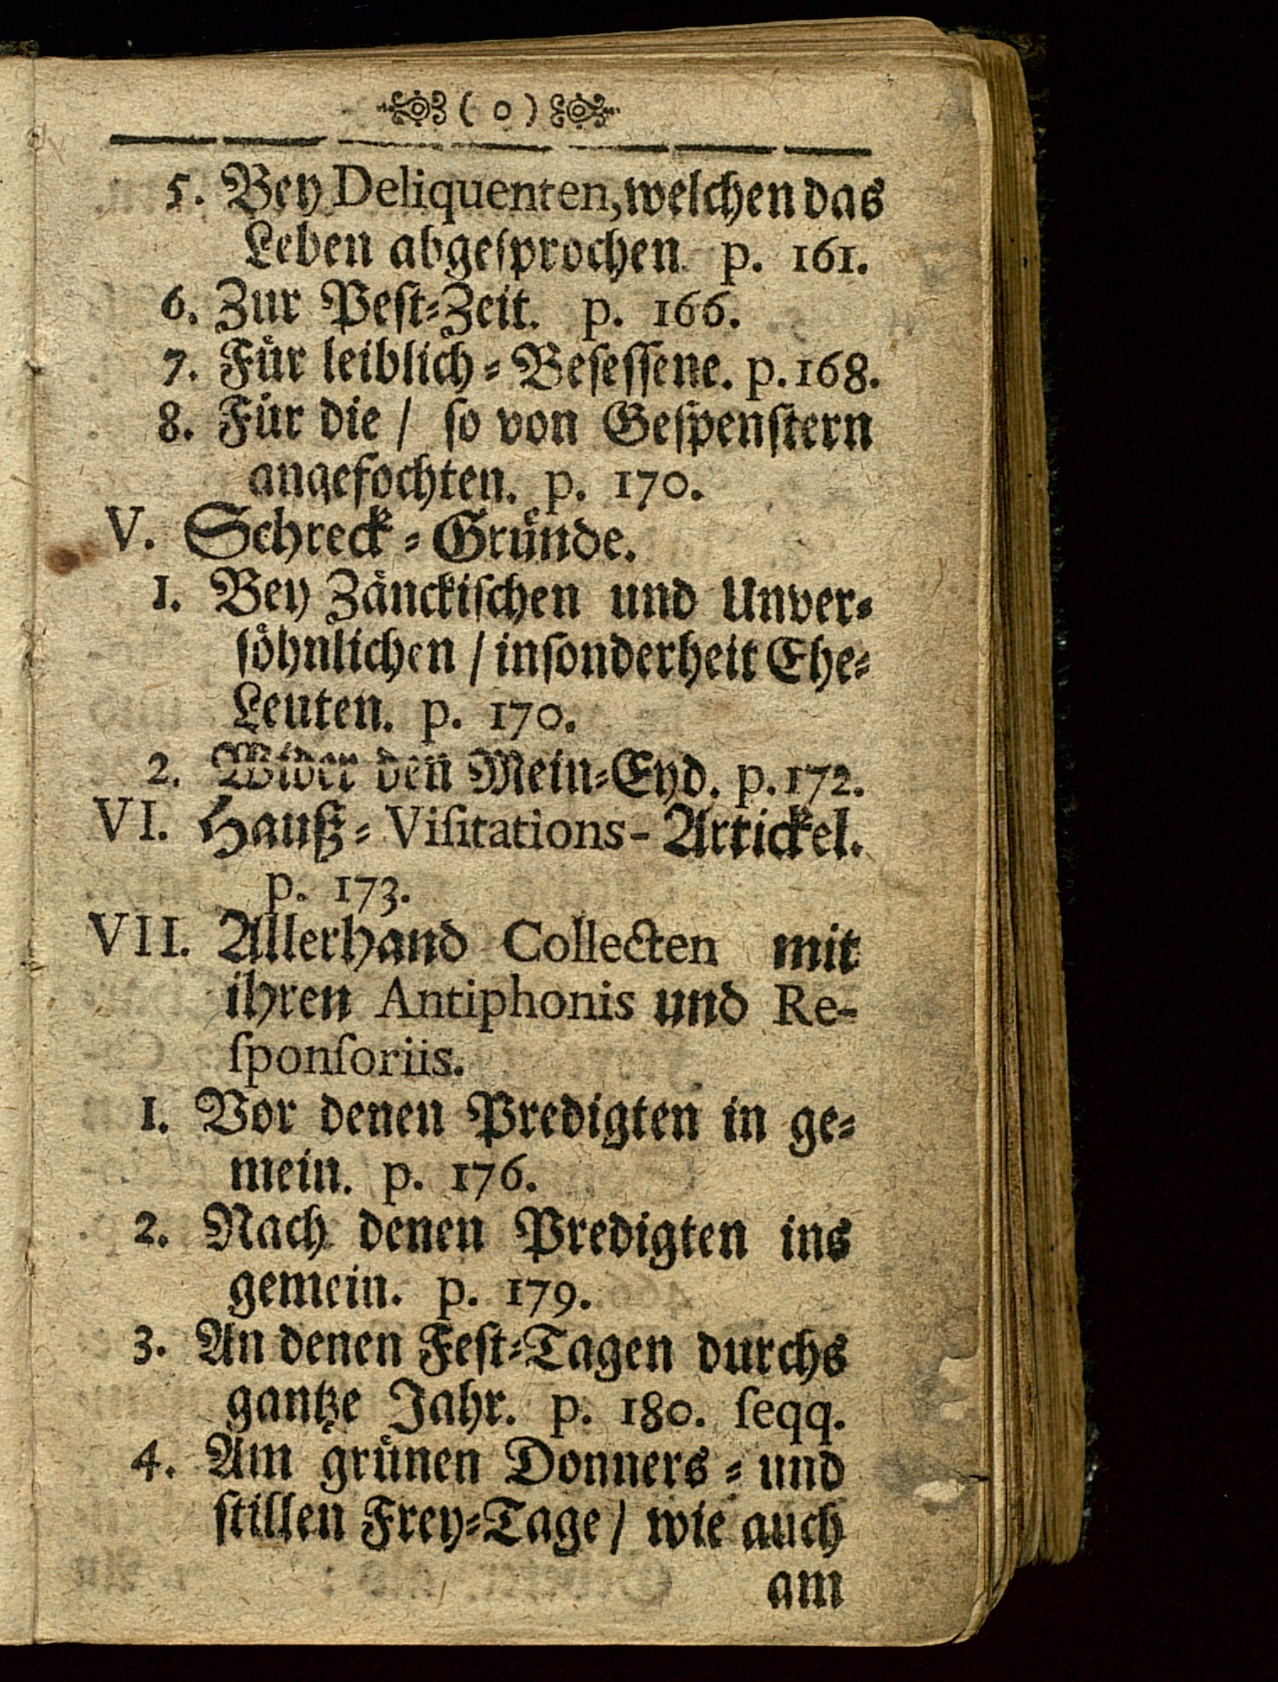 ( o )
5. Bey Deliquenten, welchen das
Leben abgeſprochen p. 161.
6. Zur Peſt⸗Zeit. p. 166.
7. Fuͤr leiblich⸗Beſeſſene. p. 168.
8. Fuͤr die / ſo von Geſpenſtern
angefochten. p. 170.
V. Schreck⸗Gruͤnde.
1. Bey Zaͤnckiſchen und Unver⸗
ſoͤhnlichen / inſonderheit Ehe⸗
Leuten. p. 170.
2. Wider den Mein⸗Eyd. p. 172.
VI. Hauß⸗Viſitations-Artickel.
p. 173.
VII. Allerhand Collecten mit
ihren Antiphonis und Re-
ſponſoriis.
1. Vor denen Predigten in ge⸗
mein. p. 176.
2. Nach denen Predigten ins
gemein. p. 179.
3. An denen Feſt⸗Tagen durchs
gantze Jahr. p. 180. ſeqq.
4. Am gruͤnen Donners⸗und
ſtillen Frey⸗Tage / wie auch
am